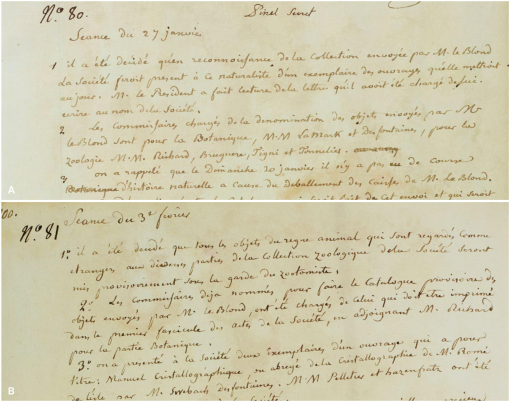 N.º 80.
Pinel Secret
Seance du 27 janvier
1 il a été décidé qu'en reconnoissance de la Collection envoyée par M. le Blond
La Société feroit present à ce naturaliste d'un exemplaire des ouvrages qu'elle mettroit
au jour. M. le President a fait lecture de la lettre qu'il avoit été chargé de lui
ecrire au nom de la Société.
2 Les Commissaires chargés de la denomination des objets envoyés par Mr
le Blond sont pour la Botanique, M.M LaMark et des fontaines, pour la
zoologie M.M. Richard, Bruguere, Tigni et Tonnelier.
3 on a rappelé que le Dimanche 20 janvier il n'y a pas eu de Course
Botanique d'histoire naturelle a Cause du deballement des Caisses de M. Le Blond.
de cet envoi et qui seroit
A
00.
N.º 81
Seance du 3e fevrier
1º. il a été decidé que tous les objets du regne animal qui sont regardés Comme
etrangers aux diverses parties de la Collection zoologique de la Société seront
mis provisoirement sous la garde du zootomiste.
2º. Les Commissaires deja nommés pour faire le Catalogue provisoire des
objets envoyés par M. le Blond, ont été chargés de Celui qui doit être imprimé
dans le premier fascicule des actes de la Société, en adjoignant M. Richard
pour la partie Botanique.
3º. on a presenté à la Société deux Exemplaires d'un ouvrage qui a pour
titre: Manuel Cristallographique, ou abregé de la Cristallographie de M. Romé
de l'isle par M. Swebach desfontaines. M.M Pelletier et hazenfratz ont été
B